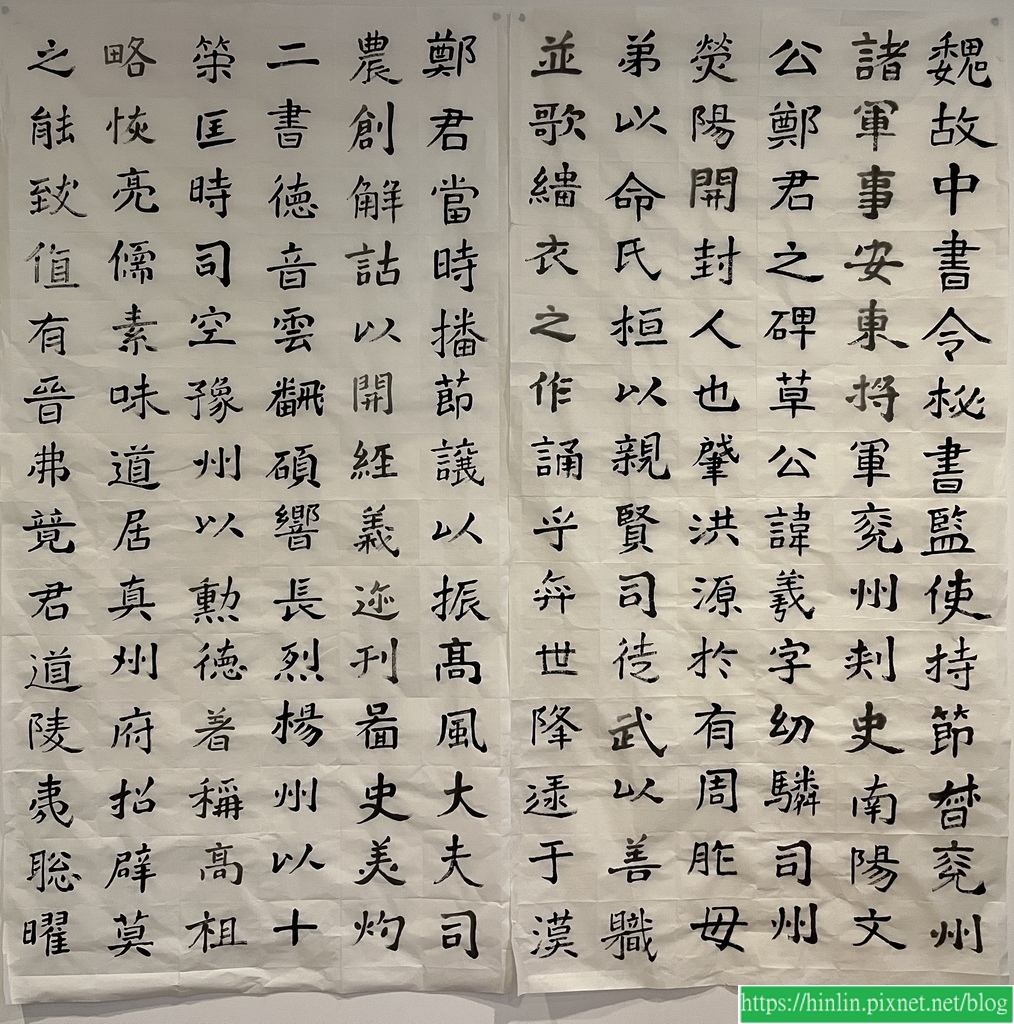 魏故中書令秘書監使持節督兗州
諸軍事安東將軍兗州刺史南陽文
公鄭君之碑草公諱羲字幼驎司州
熒陽開封人也肇洪源於有周胙母
弟以命氏桓以親賢司徒武以善職
並歌緇衣之作誦乎弈世降逮于漢
鄭君當時播節讓以振高風大夫司
農創解詁以開經義迹刊圖史美灼
二書德音雲飜碩響長烈楊州以十
策匡時司空豫州以勳德著稱高祖
略恢亮儒素味道居真州府招辟莫
之能致值有晉弗竟君道陵夷聡曜
https://hinlin.pixnet.net/blog